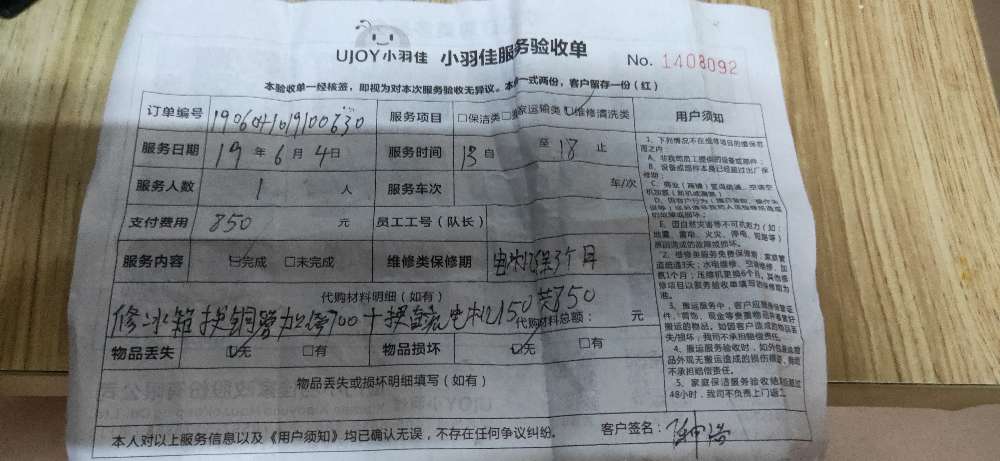 UJOY小羽佳 小羽佳服务验收单 No. 1408092
本验收单一经核签，即视为对本次服务验收无异议。本单一式两份，客户留存一份（红）
订单编号 1906041019100630 服务项目 □保洁类 □搬家运输类 ☑维修清洗类 用户须知
服务日期 19年6月4日 服务时间 13自 至18止
服务人数 1人 服务车次 车/次
支付费用 850元 员工工号（队长）
服务内容 ☑完成 □未完成 维修类保修期 电机保3个月
代购材料明细（如有）
修冰箱换铜管加液700+换 电机150共850
代购材料总额： 元
物品丢失 ☑无 □有 物品损坏 ☑无 □有
物品丢失或损坏明细填写（如有）
本人对以上服务信息以及《用户须知》均已确认无误，不存在任何争议纠纷。 客户签名：
1、下列情况不在维修项目的维保范
围之内
A、非我司员工提供的设备或部件；
B、设备或部件本身已经超过出厂保
修期；
E、因自然灾害等不可抗拒力（如：
地震、雷电、火灾、停电、短路等）
原因造成的故障或损坏。
2、维修类服务免费保障期：家庭管
道疏通3天；水电维修、空调维修、加
氟1个月；压缩机更换6个月，其他维
修项目以服务验收单填写的保修期为
准。
3、搬运服务中，客户应将身份证
件、首饰、现金等贵重物品并看管好
搬运的物品。如因客户造成的物品丢
失/损坏；我司不承担赔偿责任。
4、搬运服务验收时，如外包装或物
品外观无搬运造成的损伤痕迹，我司
不承担赔偿责任。
5、家庭保洁服务验收结束后超过
48小时，我司不负责上门返工